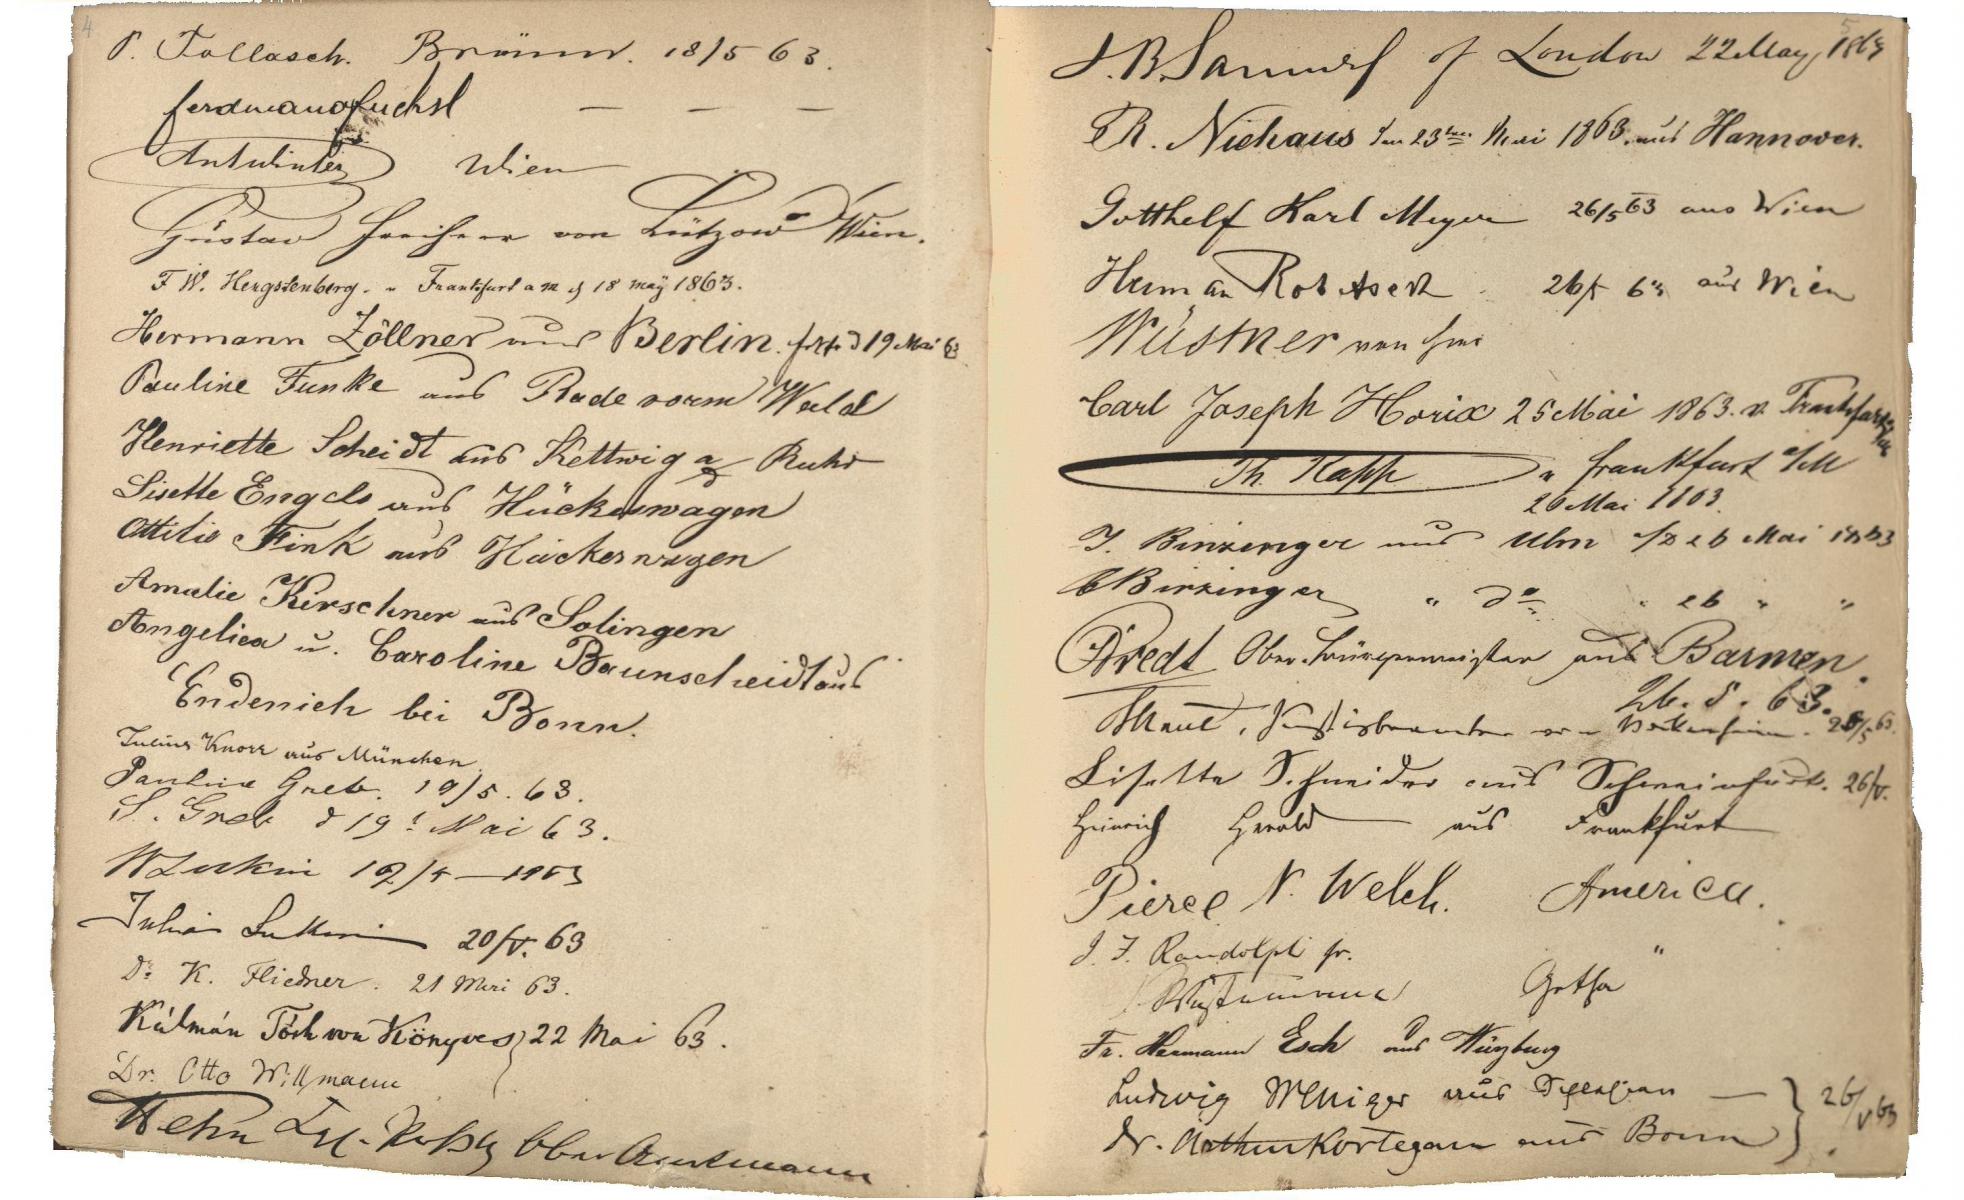 4
P. Tollasch. Brünn. 18/5 63.
Ferdinand Fuchsl — — —
Ant Winter Wien
Gustav Freiherr von Lützow Wien.
F. W. Hergstenberg. Frankfurt a M d 18 May 1863.
Hermann Zöllner aus Berlin. d 19 Mai 63
Pauline Funke aus Rade vorm Wald
Henriette Scheidt aus Kettwig a/d Ruhr
Lisette Engels aus Hückeswagen
Ottilie Fink aus Hückeswagen
Amalie Kirschner aus Solingen
Angelica u. Caroline Baunscheidt aus
Endenich bei Bonn.
Julius Knorr aus München
Pauline Greb. 19/5. 63.
S. Greb d 19t Mai 63.
19/5 — 1863
20/V. 63
Dr K. Fliedner. 21 Mai 63.
Kálmán Tóth von Könyves } 22 Mai 63.
Dr. Otto Willmann
Oberamtmann
5
J. B. Samuel of London 22 May 1863
Th. Niehaus den 23ten Mai 1863. aus Hannover.
Gotthelf Karl Meyer 26/5 63 aus Wien
Herman 26/5 63 aus Wien
Wüstner von hier
Carl Joseph Horix 25 Mai 1863. v. Frankfurt
Th. Kapp " Frankfurt a/M
26 Mai 1863.
J. Binzinger aus Ulm 26 Mai 1863
C Binzinger " do " 26 " "
Bredt Oberbürgermeister aus Barmen.
26. 5. 63.
Justizbeamter von Bockenheim. 26/5 63.
Lisette Schneider aus Schweinfurt. 26/V.
Heinrich Herold aus Frankfurt
Pierce N. Welch. America.
J. F. Randolph jr. "
Wüstemann Gotha
Fr. Hermann Esch aus Würzburg
Ludwig Weniger aus Schlesien — } 26/V 63
Dr. Arthur Kortegarn aus Bonn